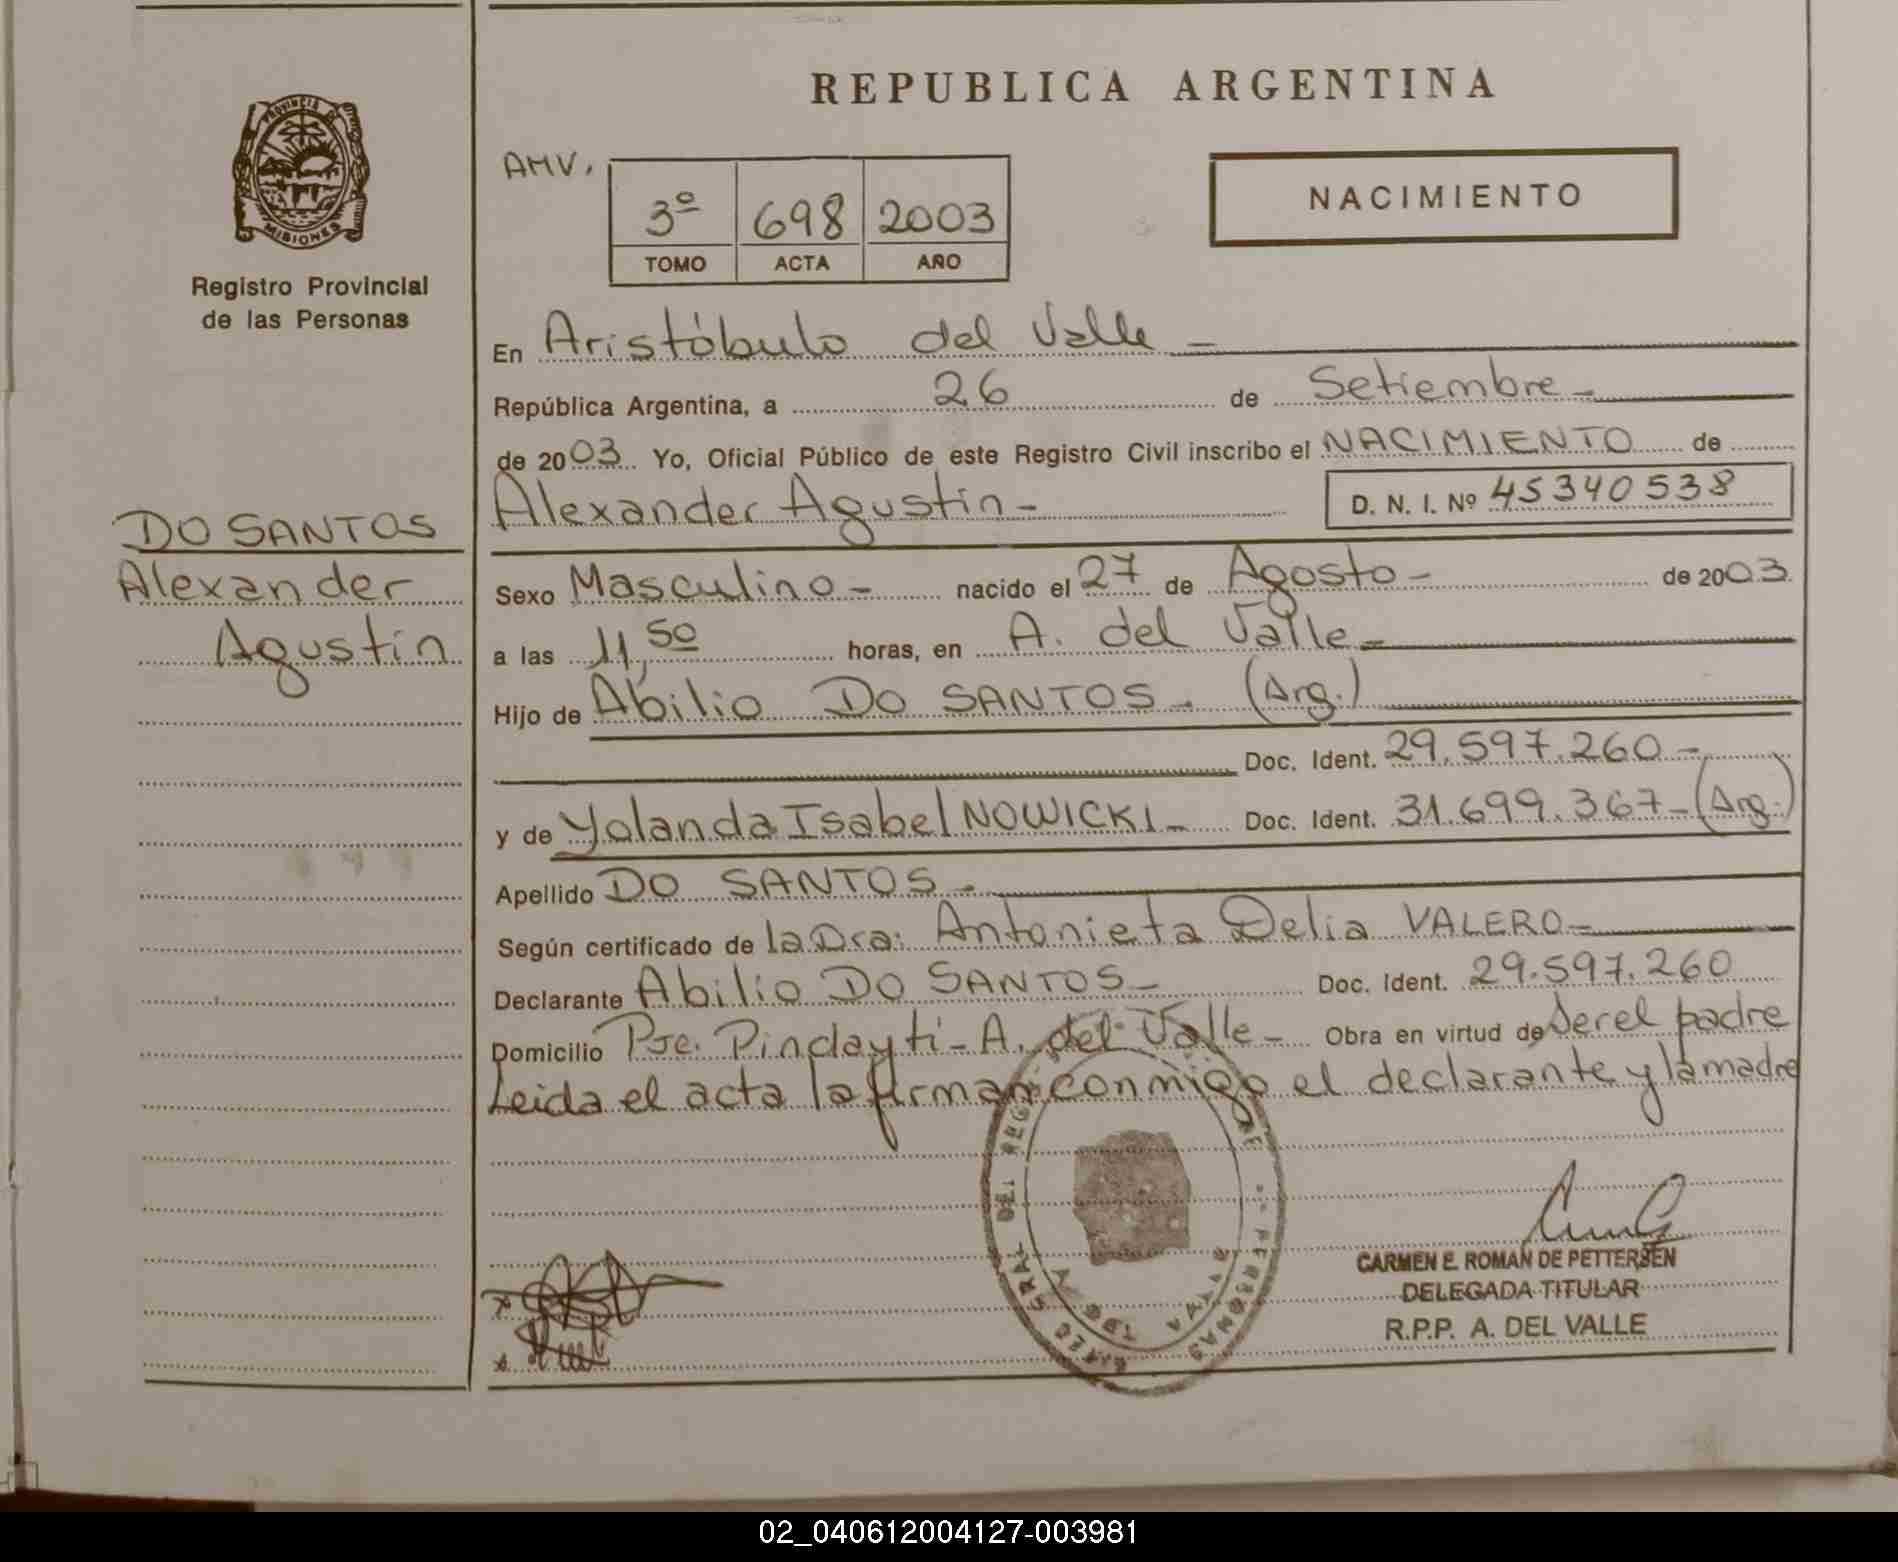 REPUBLICA ARGENTINA
PROVINCIA DE
MISIONES
Registro Provincial
de las Personas
AMV.
3º 698 2003
TOMO ACTA AÑO
NACIMIENTO
En Aristóbulo del Valle -
República Argentina, a 26 de Setiembre -
de 2003. Yo, Oficial Público de este Registro Civil inscribo el NACIMIENTO de
Alexander Agustin -
D. N. I. Nº 45340538
DO SANTOS
Alexander
Agustin
Sexo Masculino - nacido el 27 de Agosto - de 2003.
a las 11,50 horas, en A. del Valle -
Hijo de Abilio DO SANTOS - (Arg.)
Doc. Ident. 29.597.260 -
y de Yolanda Isabel NOWICKI - Doc. Ident. 31.699.367 - (Arg.)
Apellido DO SANTOS -
Según certificado de la Dra: Antonieta Delia VALERO -
Declarante Abilio DO SANTOS - Doc. Ident. 29.597.260
Domicilio Pje. Pindayti - A. del Valle - Obra en virtud de Ser el padre
Leida el acta la firman conmigo el declarante y la madre
CARMEN E. ROMAN DE PETTERSEN
DELEGADA TITULAR
R.P.P. A. DEL VALLE
02_040612004127-003981